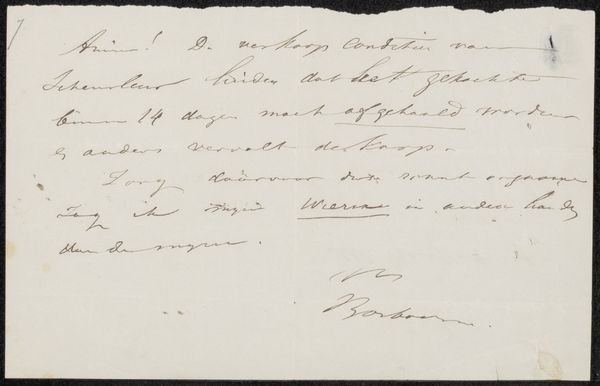 Amice! De verkoop conditien van
Scheurleer luiden dat het gekochte
binnen 14 dagen moet afgehaald worden
anders vervalt de koop.
Zorg daarvoor dus want ongaarne
zag ik mijn Wierix in andere handen
dan de mijne.